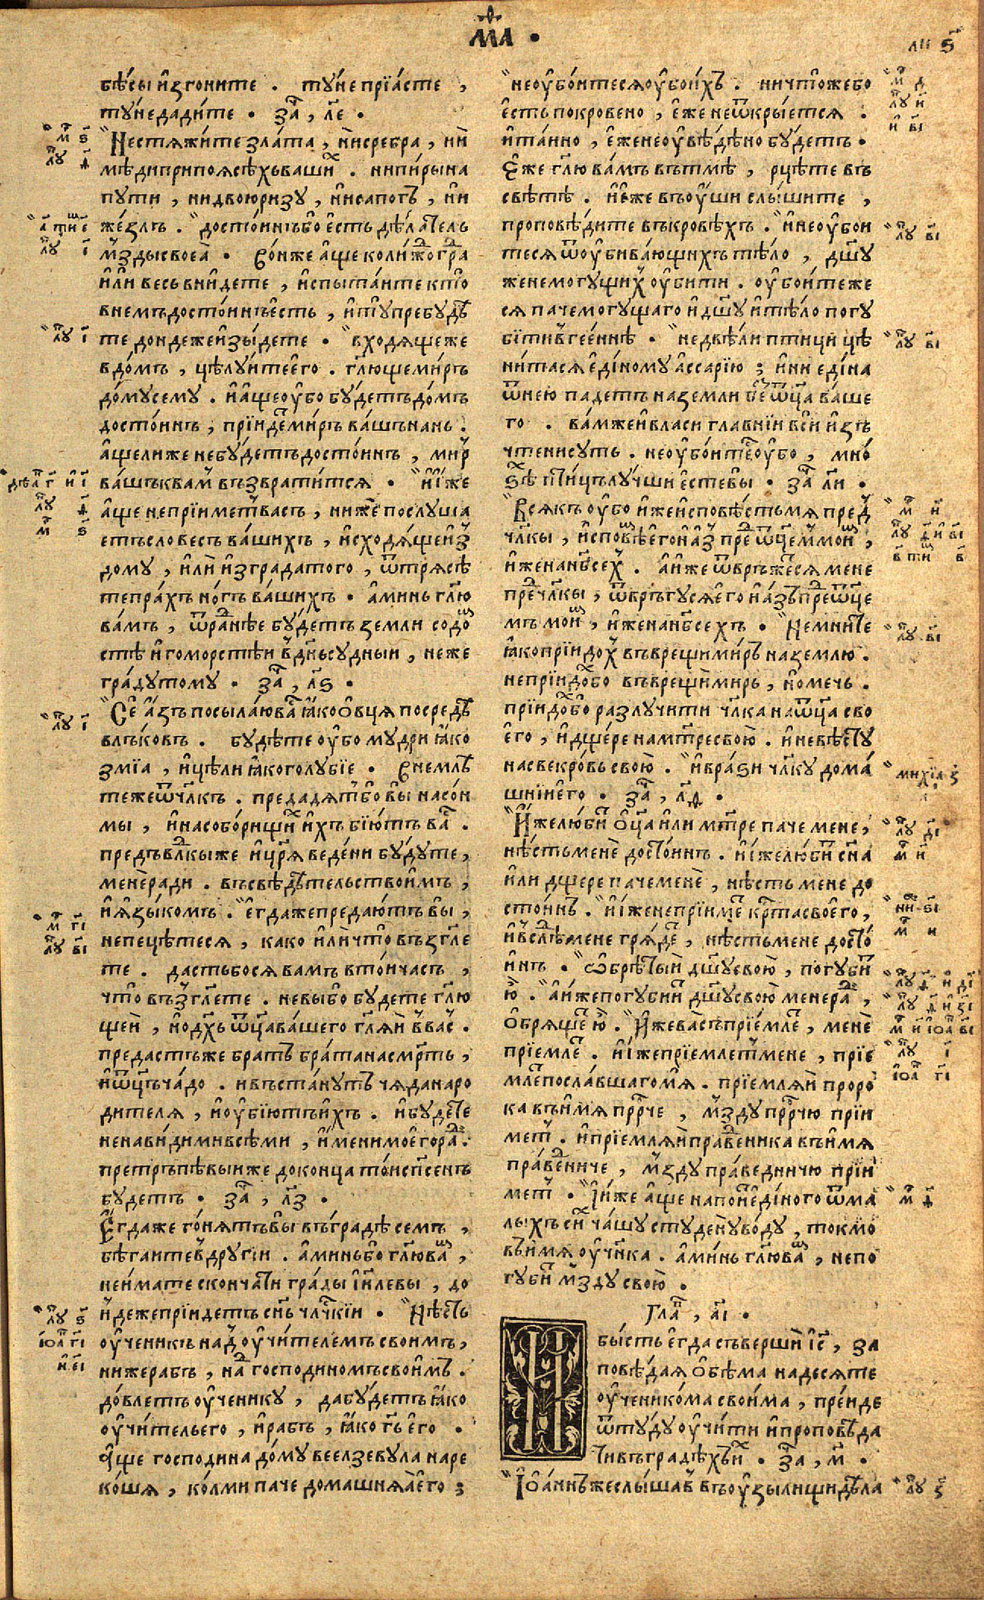 мл҃ .
бѣ́сы и҆згоните . ту́не прїа́сте ,
ту́не дади́те . за҃ , ле҃ .
Не стяжи́те зла́та , ни сребра , ни
мѣ́ди при поясѣ́хъ ваши́х . ни пи́ры на
пути , ни двою ри́зу , ни сапогъ , ни
же́злъ . досто́инъ бо е҆сть дѣ́латель
мзды своеа̀ . Во́ньже а҆ще коли́ждо гра́д
и҆ли весь вни́дете , и҆спыта́ите кто̀
в немъ досто́инъ е҆сть , и҆ ту̀ пребу́дѣ
те до́ндеже и҆зы́дете . входя́ще же
в до́мъ , цѣлу́ите е҆го . гл҃юще ми́ръ
до́му сему . и҆ а҆ще о҆убо бу́детъ до́мъ
досто́инъ , прїи́деть ми́ръ ва́шъ на́нь .
а҆ще ли же не бу́детъ досто́инъ , ми́р
ва́шъ к ва́м възврати́тся . и҆ и҆́же
а҆ще не прїи́метъ ва́съ , ниже послу́ша
етъ слове́съ ва́шихъ , и҆сходя́ще из
до́му , и҆лѝ и҆з гра́да того , ѿтряси́
те пра́хъ но́гъ ва́шихъ . а҆ми́нь гл҃ю
ва́мъ , ѿра́днѣе бу́детъ земли содо́м
стѣ и҆ гомо́рстѣи в дн҃ь су́дныи , не́же
гра́ду тому . за҃ , лѕ҃ .
Се́ а҆́зъ посыла́ю ва́с я҆́ко о҆́вця посредѣ̀
влъко́въ . бу́дѣте о҆убо му́дри я҆́ко
змїа , и҆ цѣ́ли я҆́ко голу́бїе . Внемлѣ́
те же ѿ чл҃къ . предадя́т бо вы̀ на со́н
мы , и҆ на собо́рищих и҆́хъ бїю́тъ ва́с .
предъ влкы же и҆ цр҃я ведени бу́дуте ,
менѐ ради . въ свѣдѣ́тельство и҆́мъ ,
и҆ язы́комъ . Е҆гда́ же предаю́тъ вы̀ ,
не пецѣ́теся , ка́ко и҆лѝ что̀ възгл҃е
те . да́сть бо ся ва́мъ в то́и ча́съ ,
что̀ възгл҃ете . не вы̀ бо бу́дете гл҃ю
щеи , но̀ дх҃ъ ѿц҃а ва́шего гл҃яи в ва́с .
преда́стъ же бра́тъ бра́та на смр҃ть ,
и҆ ѿц҃ъ ча́до . и въста́нутъ чя́да на ро
ди́теля , и҆ о҆убїю́тъ и҆́хъ . и҆ бу́дете
ненави́дими всѣ́ми , и҆́мени моего̀ ра́ди .
претръпѣ́выи же до конца то́и сп҃сенъ
бу́детъ . за҃ , лз҃ .
Е҆гда́ же го́нятъ вы̀ въ гра́дѣ се́мъ ,
бѣ́гаите в дру́гїи . а҆ми́нь бо гл҃ю ва́м ,
не и҆́мате сконча́ти гра́ды і҆и҃левы , до́
и҆́деже прїи́детъ сн҃ъ чл҃чкїи . Нѣ́сть
о҆учени́къ над о҆учи́телемъ свои́мъ ,
ниже ра́бъ , над господи́номъ свои́мъ .
довлѣ́етъ о҆ученику , да бу́детъ я҆́ко
о҆учи́тель его , и҆ ра́бъ , я҆́ко гь҃ е҆го .
А҆ще господи́на до́му веелзеву́ла наре
ко́шя , ко́лми па́че дома́шняа е҆го ;
не о҆убо́итеся о҆убо и҆́хъ . ничто́же бо
е҆́сть покрове́но , е҆́же не ѿкры́ется .
и҆ та́ино , е҆́же не о҆увѣ́дѣно бу́детъ .
Е҆́же гл҃ю ва́мъ въ тмѣ̀ , рцѣ́те въ
свѣ́тѣ . и҆ е҆́же въ о҆у́ши слы́шите ,
проповѣ́дите въ кро́вѣхъ . и҆ не о҆убои
теся ѿ о҆убива́ющихъ тѣ́ло , дш҃у
же не могу́щих о҆уби́ти . о҆убо́ите же
ся па́че могу́щаго и҆ дш҃у и҆ тѣ́ло погу
би́ти в гее́ннѣ . не двѣ́ ли пти́ци цѣ
ни́тася е҆ди́ному а҆сса́рїю ; и҆ ни еди́на
ѿ нею паде́тъ на земли бе́з ѿц҃а ва́ше
го . ва́м же и҆ вла́си гла́внїи всѝ и҆зъ
чте́ни суть . не о҆убо́итеся о҆убо , мно́
ѕѣ пти́цъ лу́чши е҆сте вы̀ . за҃ ли҃ .
Вся́къ о҆убо и҆́же и҆сповѣ́сть мя пред
чл҃кы , и҆сповѣ́м е҆го и҆ а҆́з пред ѿц҃емъ мои́м ,
и҆́же на нб҃сех . а҆ и҆́же ѿвръже́тся мене
пред чл҃кы , ѿвръгу́ся е҆го и҆ а҆́зъ пред ѿц҃е
мъ мои́м , и҆́же на нб҃сехъ . Не мни́те
я҆́ко прїидо́х въврещи ми́ръ на зе́млю .
не прїидо́х бо въврещи ми́ръ , но̀ мечь .
прїидо́х бо разлучи́ти чл҃ка на ѿц҃а сво
его , и҆ дще́ре на мт҃ре свою . и҆ невѣ́сту
на свекро́вь свою . и҆ врази чл҃ку дома́
шнїи е҆го . за҃ , лѳ҃ .
И҆́же лю́бит о҆ц҃а и҆ли мт҃ре па́че мене ,
нѣ́сть менѐ досто́инъ . и҆ и҆́же лю́бит сн҃а
и҆ли дще́ре па́че менѐ , нѣ́сть мене до
сто́инъ . и҆ и҆́же не прїи́мет кр҃та своего ,
и҆ въслѣ́д мене гряде́т , нѣ́сть мене досто́
и҆нъ . Ѡ҆брѣ́тыи дш҃у свою , погу́бит
ю҆ . а҆ и҆́же погуби́т дш҃у свою мене ра́ди ,
о҆бря́щет ю҆ . И҆́же ва́съ прїе́млет , менѐ
прїе́млет . и҆ и҆́же прїе́млетъ мене , прїе́
млет посла́вшаго мя . прїе́мляи проро́
ка въ и҆́мя прр҃че , мзду прр҃чю прїи́
мет . и҆ прїе́мляи пра́ведника въ и҆́мя
пра́ведниче , мзду пра́ведничю прїи́
мет . И҆́же а҆ще напои́т е҆ди́ного ѿ ма́
лыхъ си́х ча́шу студены̀ воды̀ , то́кмо
въ и҆́мя о҆учн҃ка . а҆ми́нь гл҃ю ва́м , не по
губи́т мзду свою .
Гла҃ , аі҃ .
И бы́сть е҆гда съверши І҆с҃ , за
повѣ́дая о҆бѣ́ма на́десяте
о҆ученико́ма свои́ма , пре́иде
ѿту́ду о҆учи́ти и҆ проповѣ́да
ти въ градѣ́хъ и҆́х . за҃ , м҃ .
І҆оа́ннъ же слы́шав въ о҆узы́лищи дѣла